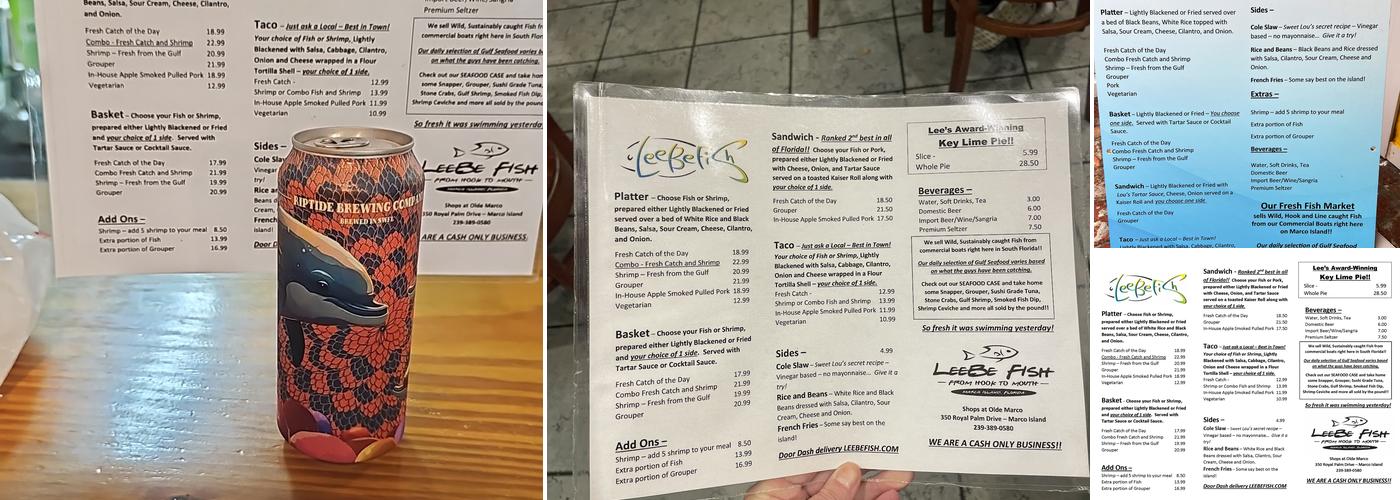 Beans, Salsa, Sour Cream, Cheese, Cilantro,
and Onion.
Fresh Catch of the Day 18.99
Combo - Fresh Catch and Shrimp 22.99
Shrimp – Fresh from the Gulf 20.99
Grouper 21.99
In-House Apple Smoked Pulled Pork 18.99
Vegetarian 12.99
Basket – Choose your Fish or Shrimp,
prepared either Lightly Blackened or Fried
and your choice of 1 side. Served with
Tartar Sauce or Cocktail Sauce.
Fresh Catch of the Day 17.99
Combo Fresh Catch and Shrimp 21.99
Shrimp – Fresh from the Gulf 19.99
Grouper 20.99
Add Ons –
Shrimp – add 5 shrimp to your meal 8.50
Extra portion of Fish 13.99
Extra portion of Grouper 16.99
Taco – Just ask a Local – Best in Town!
Your choice of Fish or Shrimp, Lightly
Blackened with Salsa, Cabbage, Cilantro,
Onion and Cheese wrapped in a Flour
Tortilla Shell – your choice of 1 side.
Fresh Catch - 12.99
Shrimp or Combo Fish and Shrimp 13.99
In-House Apple Smoked Pulled Pork 11.99
Vegetarian 10.99
Sides –
Cole Slaw
Rice
Premium Seltzer
We sell Wild, Sustainably caught Fish
commercial boats right here in South
Our daily selection of Gulf Seafood
on what the guys have been catching.
Check out our SEAFOOD CASE and take
some Snapper, Grouper, Sushi Grade Tuna,
Stone Crabs, Gulf Shrimp, Smoked Fish
Shrimp Ceviche and more all sold by the
So fresh it was swimming
LEEBE FISH
FROM HOOK TO MOUTH
MARCO ISLAND, FLORIDA
Shops at Olde Marco
350 Royal Palm Drive – Marco Island
239-389-0580
ARE A CASH ONLY BUSINESS
RIPTIDE BREWING
BREWED IN SWFL
LeeBeFish
Platter – Choose Fish or Shrimp,
prepared either Lightly Blackened or Fried
served over a bed of White Rice and Black
Beans, Salsa, Sour Cream, Cheese, Cilantro,
and Onion.
Fresh Catch of the Day 18.99
Combo - Fresh Catch and Shrimp 22.99
Shrimp – Fresh from the Gulf 20.99
Grouper 21.99
In-House Apple Smoked Pulled Pork 18.99
Vegetarian 12.99
Basket – Choose your Fish or Shrimp,
prepared either Lightly Blackened or Fried
and your choice of 1 side. Served with
Tartar Sauce or Cocktail Sauce.
Fresh Catch of the Day 17.99
Combo Fresh Catch and Shrimp 21.99
Shrimp – Fresh from the Gulf 19.99
Grouper 20.99
Add Ons –
Shrimp – add 5 shrimp to your meal 8.50
Extra portion of Fish 13.99
Extra portion of Grouper 16.99
Sandwich - Ranked 2nd best in all
of Florida!! Choose your Fish or Pork,
prepared either Lightly Blackened or Fried
with Cheese, Onion, and Tartar Sauce
served on a toasted Kaiser Roll along with
your choice of 1 side.
Fresh Catch of the Day 18.50
Grouper 21.50
In-House Apple Smoked Pulled Pork 17.50
Taco – Just ask a Local – Best in Town!
Your choice of Fish or Shrimp, Lightly
Blackened with Salsa, Cabbage, Cilantro,
Onion and Cheese wrapped in a Flour
Tortilla Shell – your choice of 1 side.
Fresh Catch - 12.99
Shrimp or Combo Fish and Shrimp 13.99
In-House Apple Smoked Pulled Pork 11.99
Vegetarian 10.99
Sides – 4.99
Cole Slaw – Sweet Lou's secret recipe –
Vinegar based – no mayonnaise... Give it a
try!
Rice and Beans – White Rice and Black
Beans dressed with Salsa, Cilantro, Sour
Cream, Cheese and Onion.
French Fries – Some say best on the
island!
Door Dash delivery LEEBEFISH.COM
Lee's Award-Winning
Key Lime Pie!!
Slice - 5.99
Whole Pie 28.50
Beverages –
Water, Soft Drinks, Tea 3.00
Domestic Beer 6.00
Import Beer/Wine/Sangria 7.00
Premium Seltzer 7.50
We sell Wild, Sustainably caught Fish from our
commercial boats right here in South Florida!!
Our daily selection of Gulf Seafood varies based
on what the guys have been catching.
Check out our SEAFOOD CASE and take home
some Snapper, Grouper, Sushi Grade Tuna,
Stone Crabs, Gulf Shrimp, Smoked Fish Dip,
Shrimp Ceviche and more all sold by the pound!!
So fresh it was swimming yesterday!
LEEBE FISH
FROM HOOK TO MOUTH
MARCO ISLAND, FLORIDA
Shops at Olde Marco
350 Royal Palm Drive – Marco Island
239-389-0580
WE ARE A CASH ONLY BUSINESS!!
Platter – Lightly Blackened or Fried served over
a bed of Black Beans, White Rice topped with
Salsa, Sour Cream, Cheese, Cilantro, and Onion.
Fresh Catch of the Day
Combo – Fresh Catch and Shrimp
Shrimp – Fresh from the Gulf
Grouper
Pork
Vegetarian
Basket – Lightly Blackened or Fried – You choose
one side. Served with Tartar Sauce or Cocktail
Sauce.
Fresh Catch of the Day
Combo Fresh Catch and Shrimp
Shrimp – Fresh from the Gulf
Grouper
Sandwich – Lightly Blackened or Fried with
Lou's Tartar Sauce, Cheese, Onion served on a
Kaiser Roll and you choose one side.
Fresh Catch of the Day
Grouper
Taco – Just ask a Local – Best in Town!
Sides –
Cole Slaw – Sweet Lou's secret recipe – Vinegar
based – no mayonnaise... Give it a try!
Rice and Beans – Black Beans and Rice dressed
with Salsa, Cilantro, Sour Cream, Cheese and
Onion.
French Fries – Some say best on the island!
Extras –
Shrimp – add 5 shrimp to your meal
Extra portion of Fish
Extra portion of Grouper
Beverages –
Water, Soft Drinks, Tea
Domestic Beer
Import Beer/Wine/Sangria
Premium Seltzer
Our Fresh Fish Market
sells Wild, Hook and Line caught Fish
from our Commercial Boats right here
on Marco Island!!
Our daily selection of Gulf Seafood
LeeBeFish
Platter – Choose Fish or Shrimp,
prepared either Lightly Blackened or Fried
served over a bed of White Rice and Black
Beans, Salsa, Sour Cream, Cheese, Cilantro,
and Onion.
Fresh Catch of the Day 18.99
Combo - Fresh Catch and Shrimp 22.99
Shrimp – Fresh from the Gulf 20.99
Grouper 21.99
In-House Apple Smoked Pulled Pork 18.99
Vegetarian 12.99
Basket – Choose your Fish or Shrimp,
prepared either Lightly Blackened or Fried
and your choice of 1 side. Served with
Tartar Sauce or Cocktail Sauce.
Fresh Catch of the Day 17.99
Combo Fresh Catch and Shrimp 21.99
Shrimp – Fresh from the Gulf 19.99
Grouper 20.99
Add Ons –
Shrimp – add 5 shrimp to your meal 8.50
Extra portion of Fish 13.99
Extra portion of Grouper 16.99
Sandwich - Ranked 2nd best in all
of Florida!! Choose your Fish or Pork,
prepared either Lightly Blackened or Fried
with Cheese, Onion, and Tartar Sauce
served on a toasted Kaiser Roll along with
your choice of 1 side.
Fresh Catch of the Day 18.50
Grouper 21.50
In-House Apple Smoked Pulled Pork 17.50
Taco – Just ask a Local – Best in Town!
Your choice of Fish or Shrimp, Lightly
Blackened with Salsa, Cabbage, Cilantro,
Onion and Cheese wrapped in a Flour
Tortilla Shell – your choice of 1 side.
Fresh Catch - 12.99
Shrimp or Combo Fish and Shrimp 13.99
In-House Apple Smoked Pulled Pork 11.99
Vegetarian 10.99
Sides – 4.99
Cole Slaw – Sweet Lou's secret recipe –
Vinegar based – no mayonnaise... Give it a
try!
Rice and Beans – White Rice and Black
Beans dressed with Salsa, Cilantro, Sour
Cream, Cheese and Onion.
French Fries – Some say best on the
island!
Door Dash delivery LEEBEFISH.COM
Lee's Award-Winning
Key Lime Pie!!
Slice - 5.99
Whole Pie 28.50
Beverages –
Water, Soft Drinks, Tea 3.00
Domestic Beer 6.00
Import Beer/Wine/Sangria 7.00
Premium Seltzer 7.50
We sell Wild, Sustainably caught Fish from our
commercial boats right here in South Florida!!
Our daily selection of Gulf Seafood varies based
on what the guys have been catching.
Check out our SEAFOOD CASE and take home
some Snapper, Grouper, Sushi Grade Tuna,
Stone Crabs, Gulf Shrimp, Smoked Fish Dip,
Shrimp Ceviche and more all sold by the pound!!
So fresh it was swimming yesterday!
LEEBE FISH
FROM HOOK TO MOUTH
Shops at Olde Marco
350 Royal Palm Drive – Marco Island
239-389-0580
WE ARE A CASH ONLY BUSINESS!!